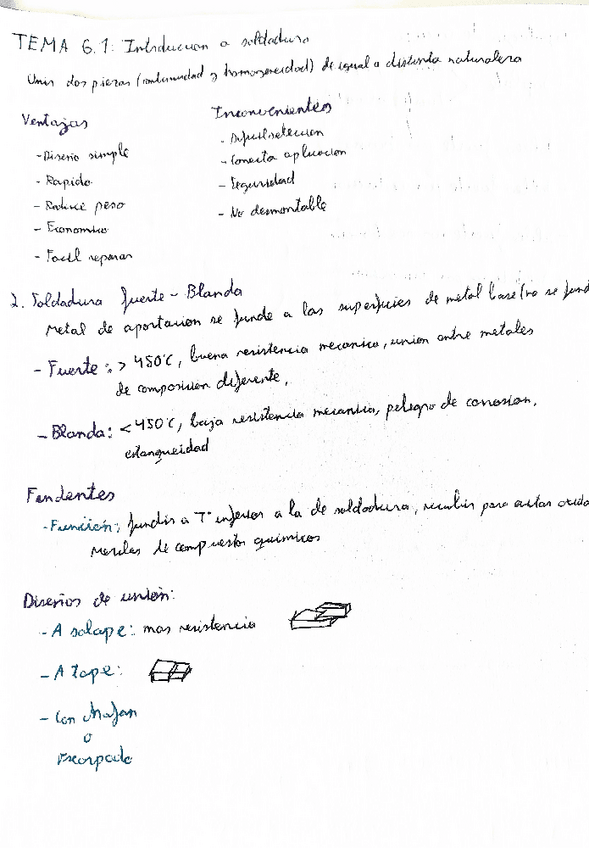 TEMA 6.1: Introduccion a soldadura
Unir dos piezas (continuidad y homogeneidad) de igual o distinta naturaleza
Ventajas
- Diseño simple
- Rapido
- Reduce peso
- Economico
- Facil reparar
Inconvenientes
- Dificil deteccion
- Correcta aplicacion
- Seguridad
- No desmontable
2. Soldadura fuerte - Blanda
Metal de aportacion se funde a las superficies de metal base (no se fund
- Fuerte: > 450°C, buena resistencia mecanica, union entre metales
de composicion diferente.
- Blanda: < 450°C, baja resistencia mecanica, peligro de corrosion,
estanqueidad
Fundentes
- Función: fundir a Tª inferior a la de soldadura, recubrir para evitar oxido
Mezclas de compuestos quimicos
Diseños de unión:
- A solape: mas resistencia
- A tope:
- Con chaflan
o
escarpado